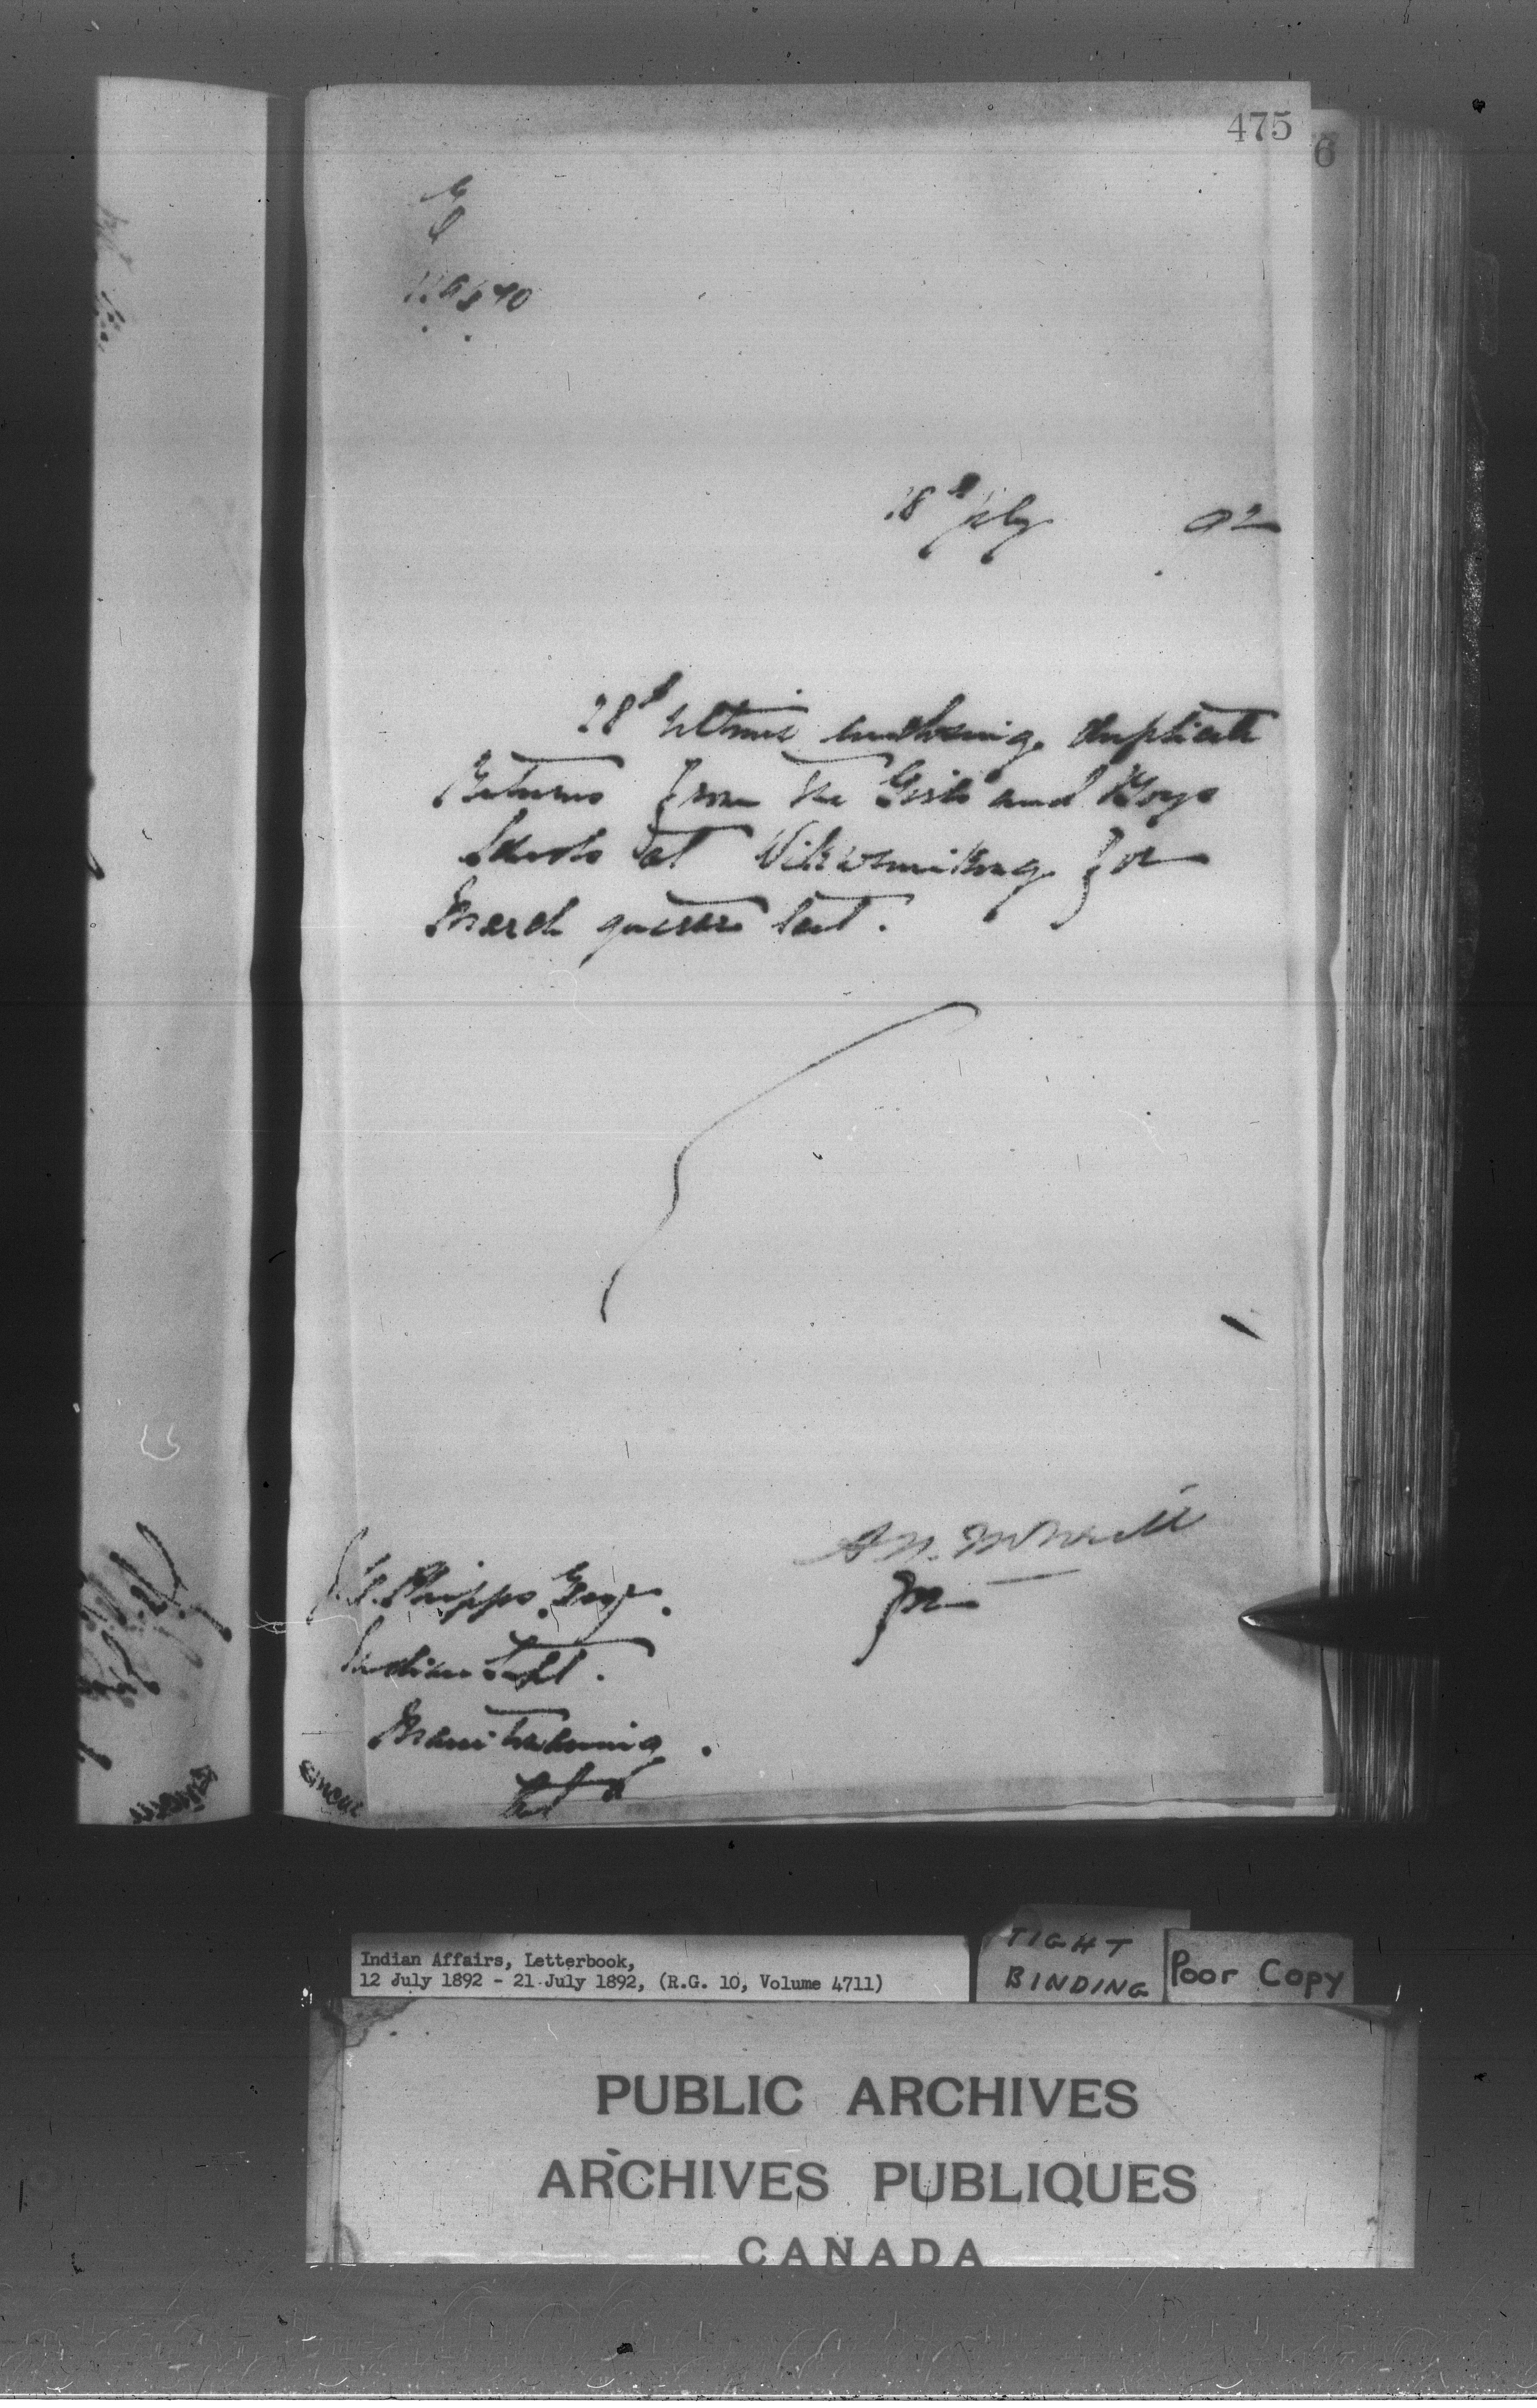 475
6
18th July 92
28th Ultimo enclosing duplicate
Returns from the Girls and Boys
Schools at Wikwemikong for
March quarter last.
A. N. McNeill
for
J. C. Phipps Esqr.
Indian Supt.
Manitowaning
Ont
Indian Affairs, Letterbook,
12 July 1892 - 21 July 1892, (R.G. 10, Volume 4711)
TIGHT
BINDING
Poor Copy
PUBLIC ARCHIVES
ARCHIVES PUBLIQUES
CANADA